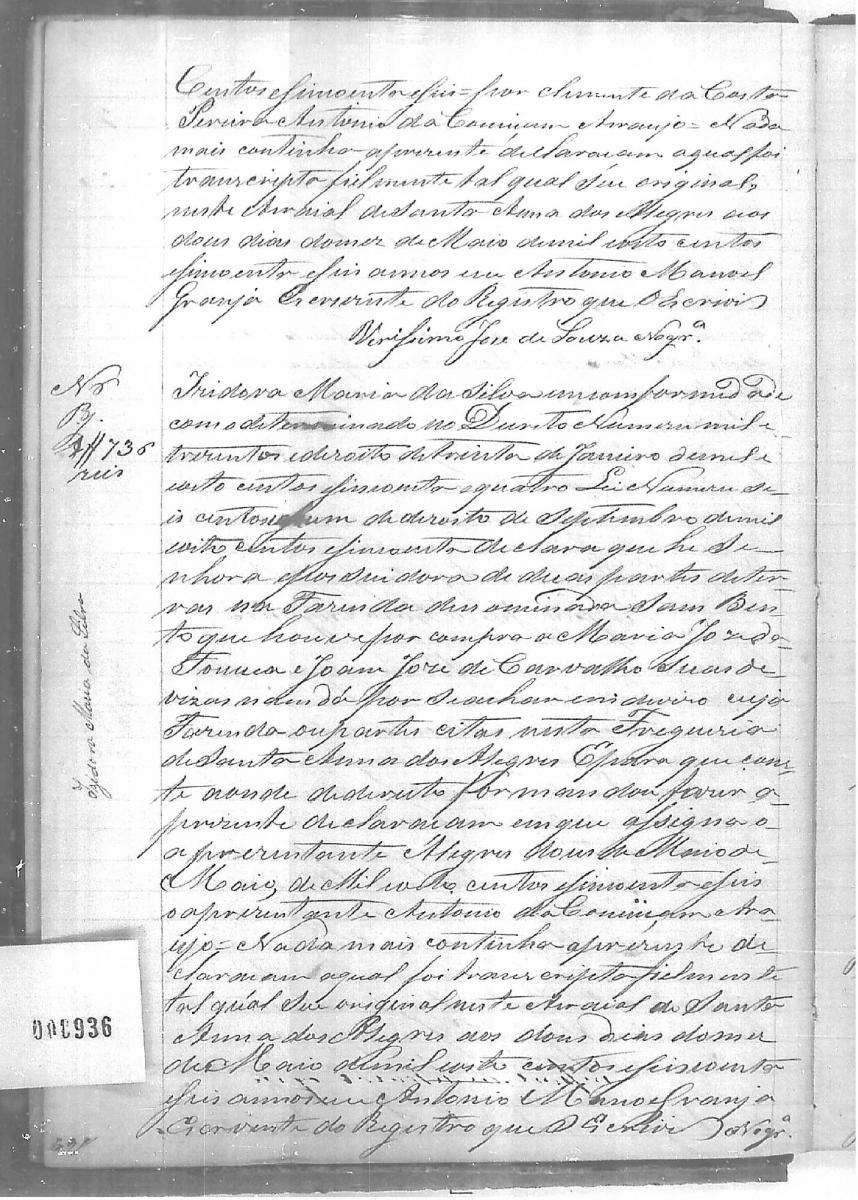 Centos e sincoenta e seis = por clemente da Costa
Pereira Antonio da Conceicam Araujo = Nada
mais continha a prezente declaracam a qual foi
transcripta fielmente tal qual seu original,
neste Arraial de Santa Anna dos Alegres aos
dous dias do mez de Maio de mil oito centos
e sincoenta e seis annos eu Antonio Manoel
Granja Escrevente do Registro que o Escrivi
Verissimo Joze de Souza Nogr.ª
Nº
736
reis
Izidora Maria da Silva em comformidade
com o determinado no Decreto Numero mil e
trezentos e dezoito de trinta de Janeiro de mil e
oito centos e sincoenta e quatro Lei Numero se-
is centos e hum de dezoito de Septembro de mil
oito centos e sincoenta declara que he Se-
nhora e possuidora de duas partes de ter-
ras na Fazenda denominada Sam Ben-
to que houve por compra a Maria Joze da
Fonceca e Joam Joze de Carvalho Suas de-
vizas nam dá por se achar em divizo cuja
Fazenda ou partes citas nesta Freguezia
de Santa Anna dos Alegres E para que cons-
te aonde de dereito for mandou fazer a
prezente declaracam em que assigna o
aprezentante Alegres dous de Maio de
Maio, de Mil oito centos e sincoenta e seis
o aprezentante Antonio da Conceicam Ara-
ujo = Nada mais continha a prezente de-
claracam a qual foi transcripta fielmente
tal qual seu original neste Arraial de Santa
Anna dos Alegres aos dous dias do mez
de Maio de mil oito centos e sincoenta
e seis annos eu Antonio Manoel Granja
Escrevente do Registro que o Escrivi Nogr.ª
Izidora Maria da Silva
000936